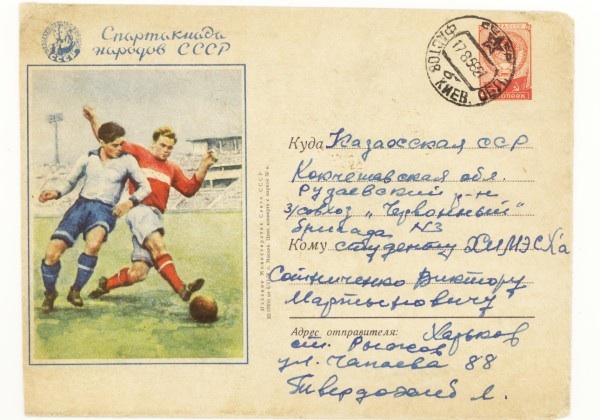 Спартакиада
народов СССР
СССР
17 8 56
КИЕВ. ОБЛ.
Куда Казахская ССР
Кокчетавская обл.
Рузаевский р-н
з/совхоз „Червонный"
бригада N3
Кому студенту ХИМЭСХ'а
Мартыновичу
Издание Министерства Связи СССР
Адрес отправителя: Харьков
ст. Рыжов
ул. Чапаева 88
Твердохлеб Л.